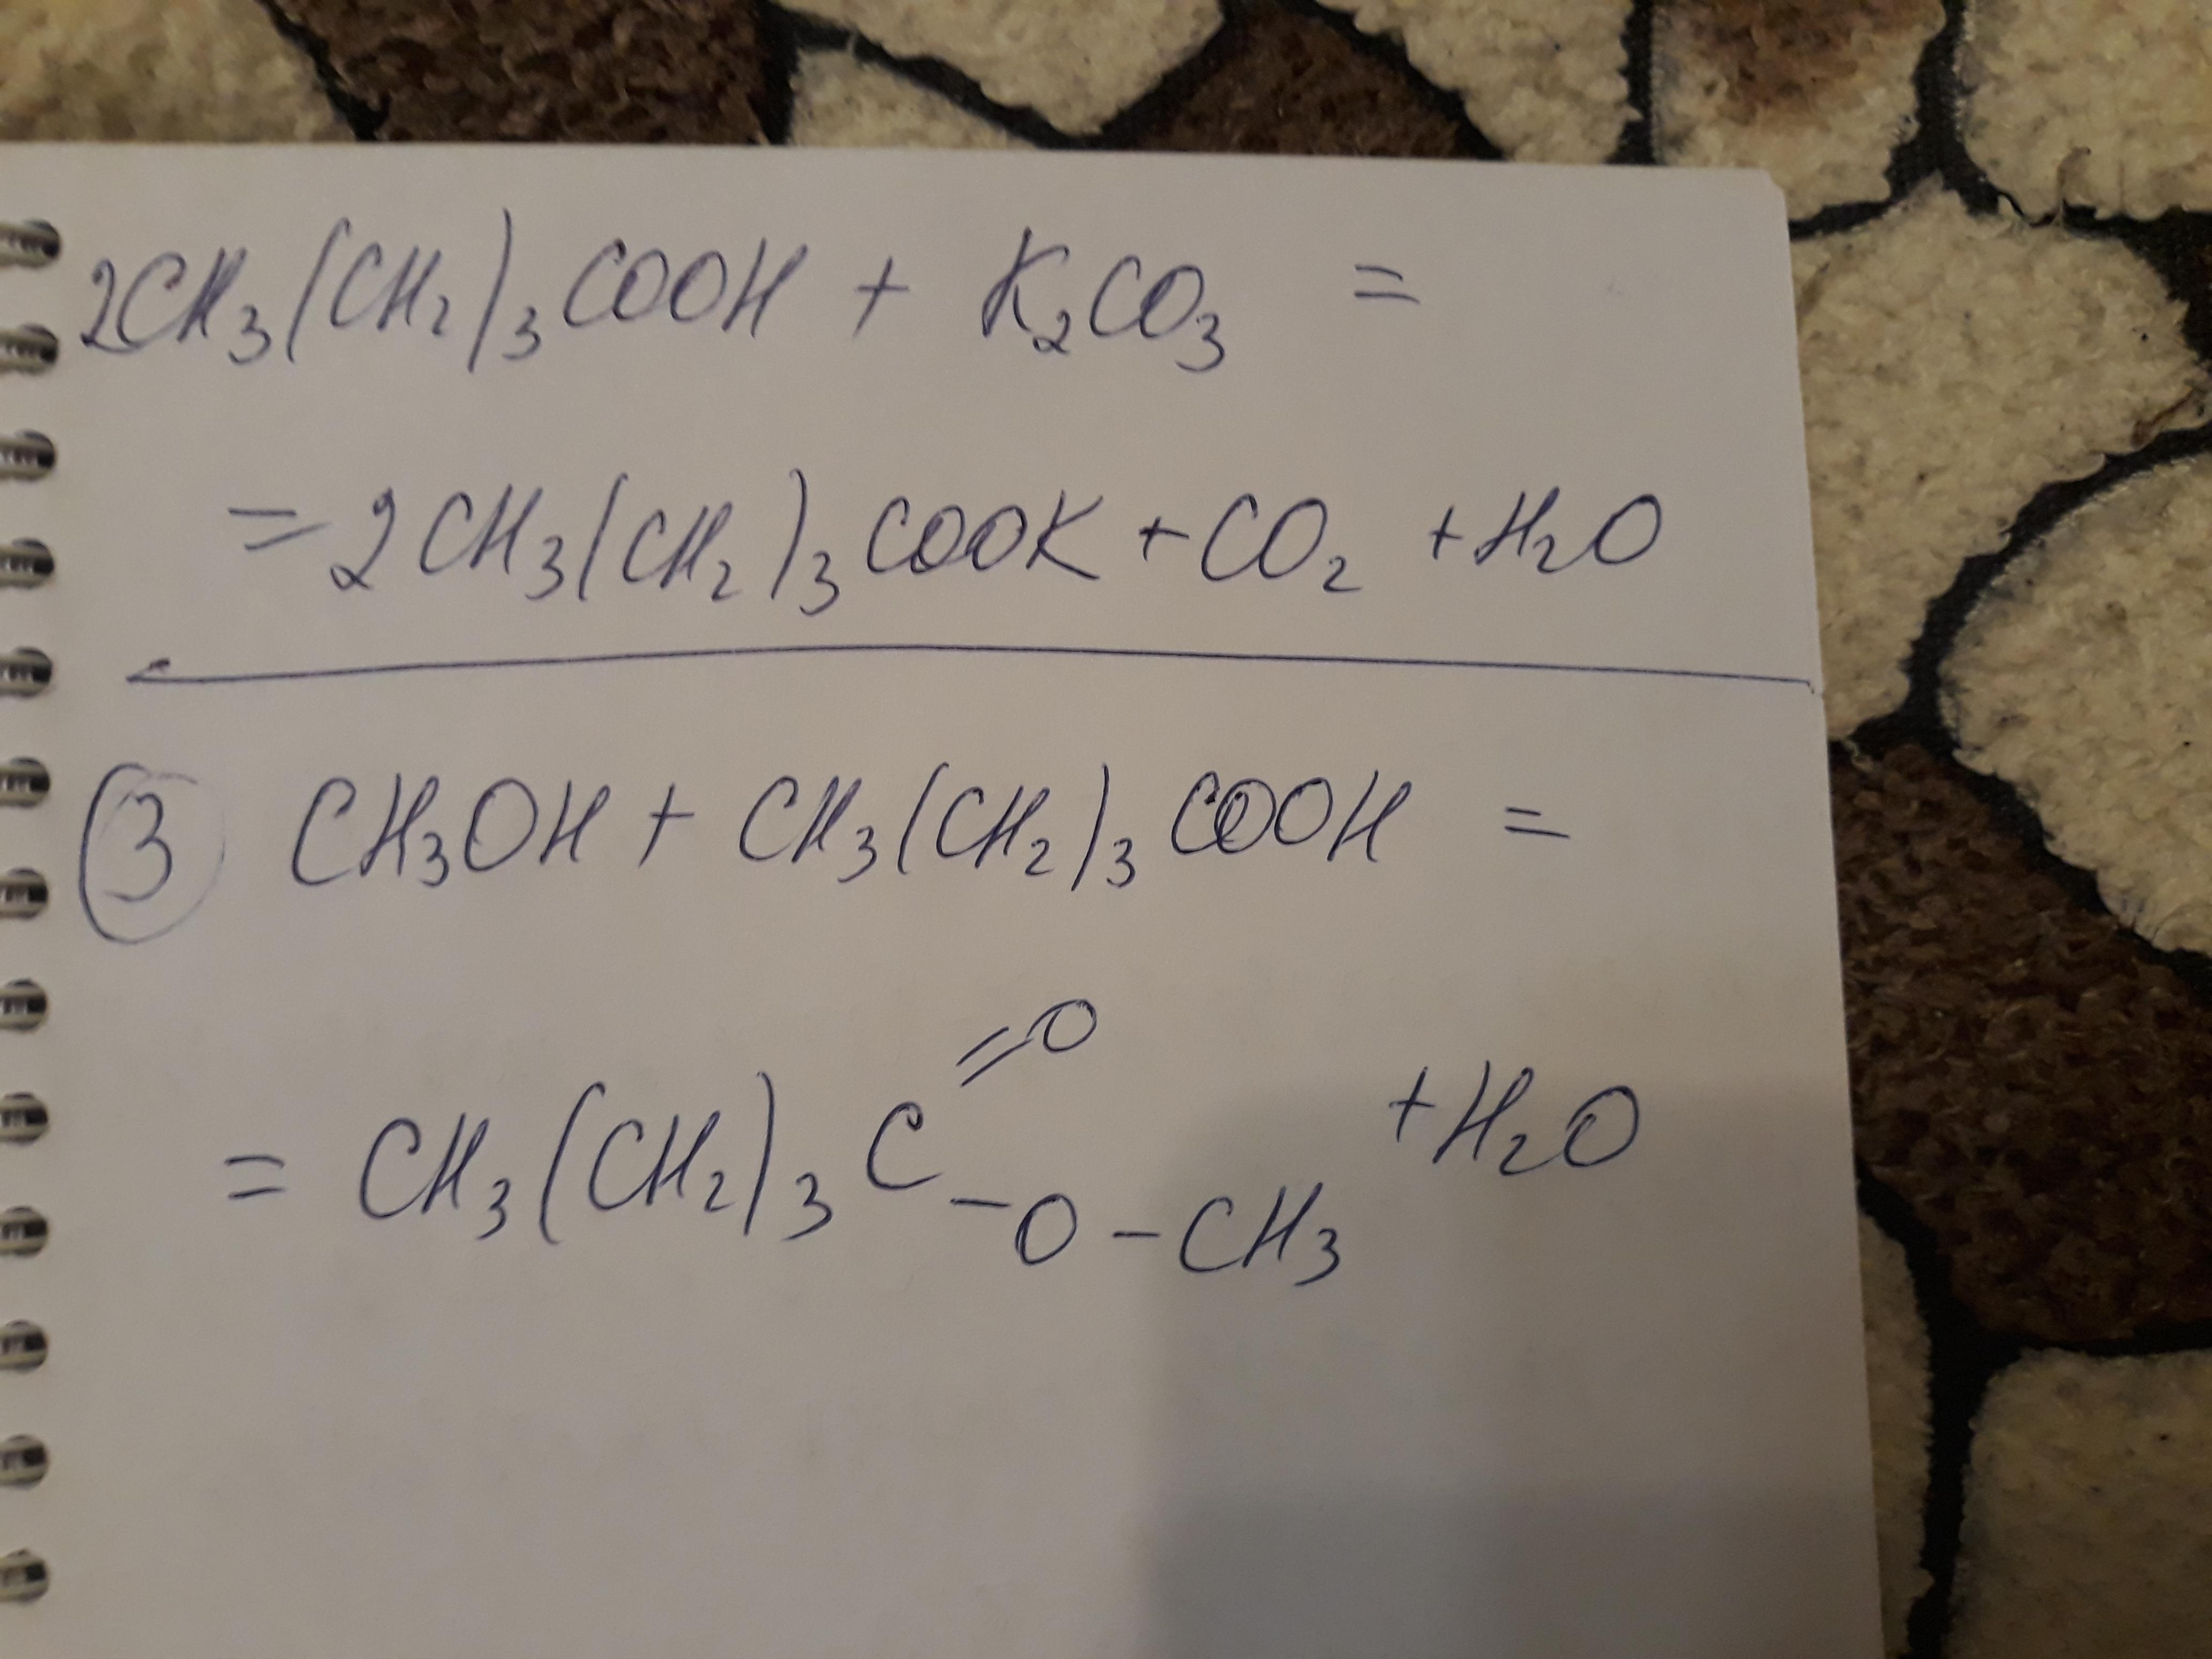 2CH₃(CH₂)₃COOH + K₂CO₃ =
= 2CH₃(CH₂)₃COOK + CO₂ + H₂O
3 CH₃OH + CH₃(CH₂)₃COOH =
=O
= CH₃(CH₂)₃C + H₂O
-O-CH₃